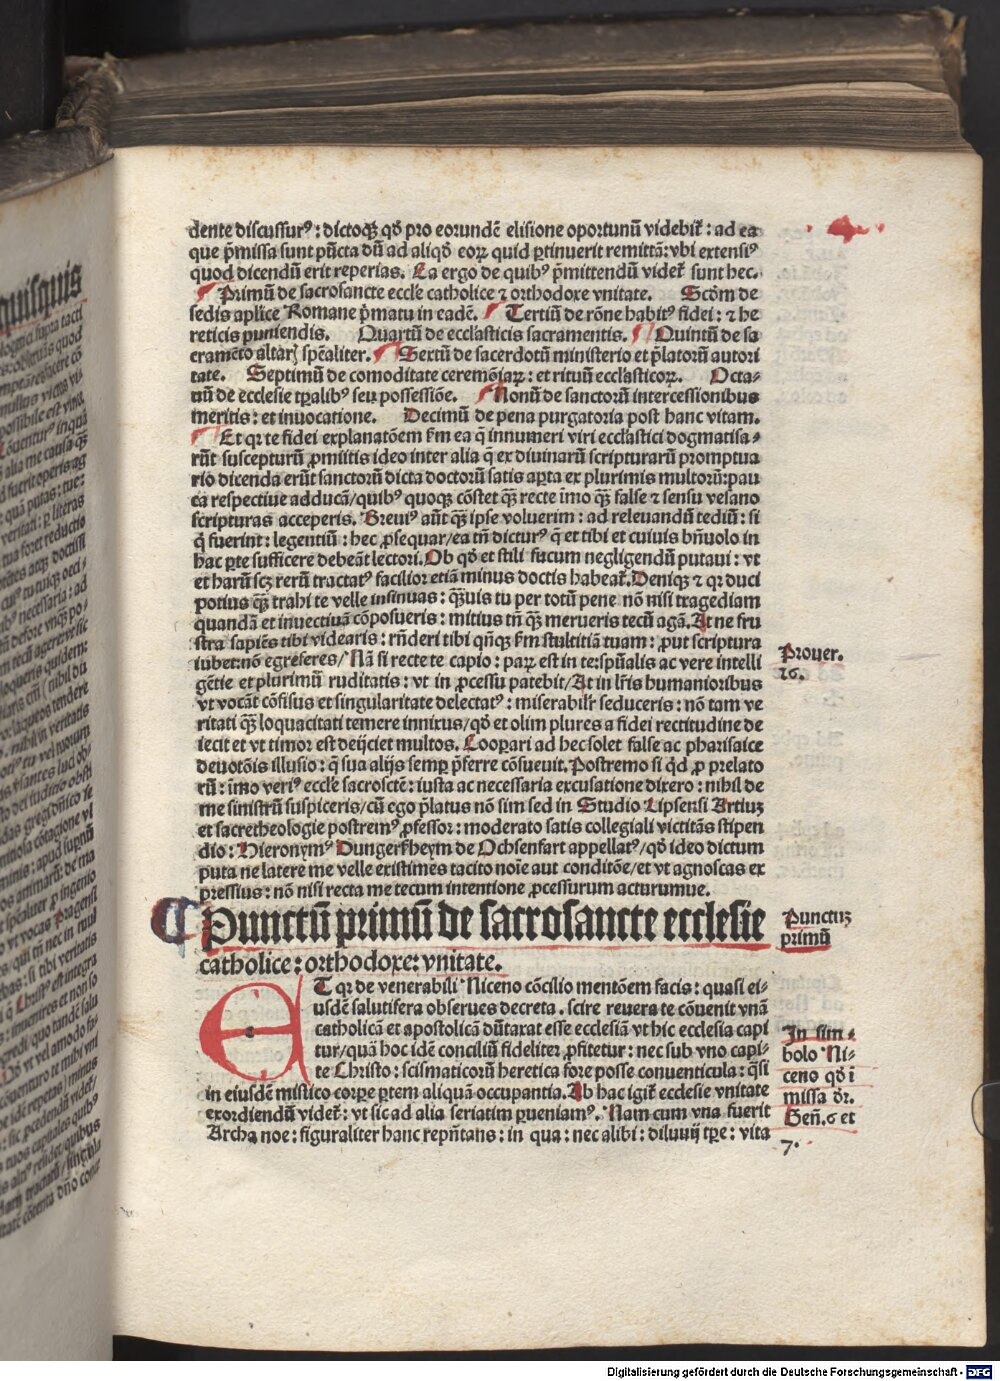 dente discussurꝰ: dictoqꝫ qđ pro eorundē elisione oportunū videbiť: ad ea
que p̄missa sunt pūcta dū ad aliqđ eoꝝ quid ꝑtinuerit remittā: vbi extensiꝰ
quod dicendū erit reperias. Ea ergo de quibꝰ p̄mittendū videť sunt hec.
Primū de sacrosancte eccl̄e catholice ⁊ orthodoxe vnitate. Scđm de
sedis apl̄ice Romane p̄matu in eadē. Tertiū de rōne habitꝰ fidei: ⁊ he
reticis puniendis. Quartū de eccl̄asticis sacramentis. Quintū de sa
cramēto altaꝝ sp̄ealiter. Sextū de sacerdotū ministerio et p̄latorū autori
tate. Septimū de comoditate ceremōiaꝝ: et rituū eccl̄asticoꝝ. Octa-
uū de ecclesie tꝑalibꝰ seu possessiōe. Nonū de sanctorū intercessionibus
meritis: et inuocatione. Decimū de pena purgatoria post hanc vitam.
Et qꝛ te fidei explanatōem ẜm ea q̄ innumeri viri eccl̄astici dogmatisa-
rūt suscepturū ꝓmittis ideo inter alia q̄ ex diuinarū scripturarū promptua
rio dicenda erūt sanctorū dicta doctorū satis aꝑta ex plurimis multorū: pau
ca respectiue adducā/quibꝰ quoqꝫ cōstet qꝫ̄ recte imo qꝫ̄ false ⁊ sensu vesano
scripturas acceperis. Breuiꝰ aūt qꝫ̄ ipse voluerim: ad releuandū tediū: si
q̄ fuerint: legentiū: hec ꝓsequar/ea tn̄ dicturꝰ q̄ et tibi et cuiuis bn̄uolo in
hac ꝑte sufficere debeāt lectori. Ob qđ et stili fucum negligendū putaui: vt
et harū scꝫ rerū tractatꝰ facilior etiā minus doctis habeať. Deniqꝫ ⁊ qꝛ duci
potius qꝫ̄ trahi te velle insinuas: qꝫ̄uis tu per totū pene nō nisi tragediam
quandā et inuectiuā cōposueris: mitius tn̄ qꝫ̄ merueris tecū agā. At ne fru
stra sapiēs tibi videaris: rn̄deri tibi qn̄qꝫ ẜm stultitiā tuam: ꝓut scriptura
iubet: nō egreferes/Nā si recte te capio: paꝝ est in te: sp̄ualis ac vere intelli
gētie et plurimū ruditatis: vt in ꝓcessu patebit/At in lr̄is humanioribus
vt vocāt cōfisus et singularitate delectatꝰ: miserabilr̄ seduceris: nō tam ve
ritati qꝫ̄ loquacitati temere innixus/qđ et olim plures a fidei rectitudine de
iecit et vt timor est deijciet multos. Cooꝑari ad hec solet false ac pharisaice
deuotōis illusio: q̄ sua alijs semꝑ p̄ferre cōsueuit. Postremo si qđ ꝓ prelato
rū: imo veriꝰ eccl̄e sacroscte̅: iusta ac necessaria excusatione dixero: nihil de
me sinistrū suspiceris/cū ego p̄latus nō sim sed in Studio Lipsensi Artiuꝫ
et sacretheologie postremꝰ ꝓfessor: moderato satis collegiali victitās stipen
dio: Hieronymꝰ Dungerßheym de Ochsenfart appellatꝰ/qđ ideo dictum
puta ne latere me velle existimes tacito noīe aut conditōe/et vt agnoscas ex
pressius: nō nisi recta me tecum intentione ꝓcessurum acturumue.
¶ Punctū primū de sacrosancte ecclesie
catholice: orthodoxe: vnitate.
ET qꝛ de venerabili Niceno cōcilio mentōem facis: quasi ei-
usdē salutifera obserues decreta. scire reuera te cōuenit vnā
catholicā et apostolicā dūtaxat esse ecclesiā vt hic ecclesia capi
tur/quā hoc idē conciliū fideliter ꝓfitetur: nec sub vno capi-
te Christo: scismaticorū heretica fore posse conuenticula: qͣsi
in eiusdē mistico corꝑe ꝑtem aliquā occupantia. Ab hac igiť ecclesie vnitate
exordiendū videť: vt sic ad alia seriatim ꝑueniamꝰ. Nam cum vna fuerit
Archa noe: figuraliter hanc repn̄tans: in qua: nec alibi: diluuij tꝑe: vita
Prouer.
26.
Punctuꝫ
primū
In sim-
bolo Ni-
ceno qđ ī
missa dr̄.
Geñ.6 et
7.
Digitalisierung gefördert durch die Deutsche Forschungsgemeinschaft - DFG